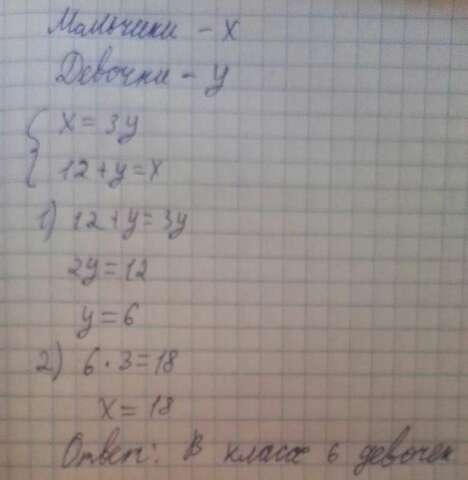 Мальчики - x
Девочки - y
{ x = 3y
12 + y = x
1) 12 + y = 3y
2y = 12
y = 6
2) 6 · 3 = 18
x = 18
Ответ: В классе 6 девочек